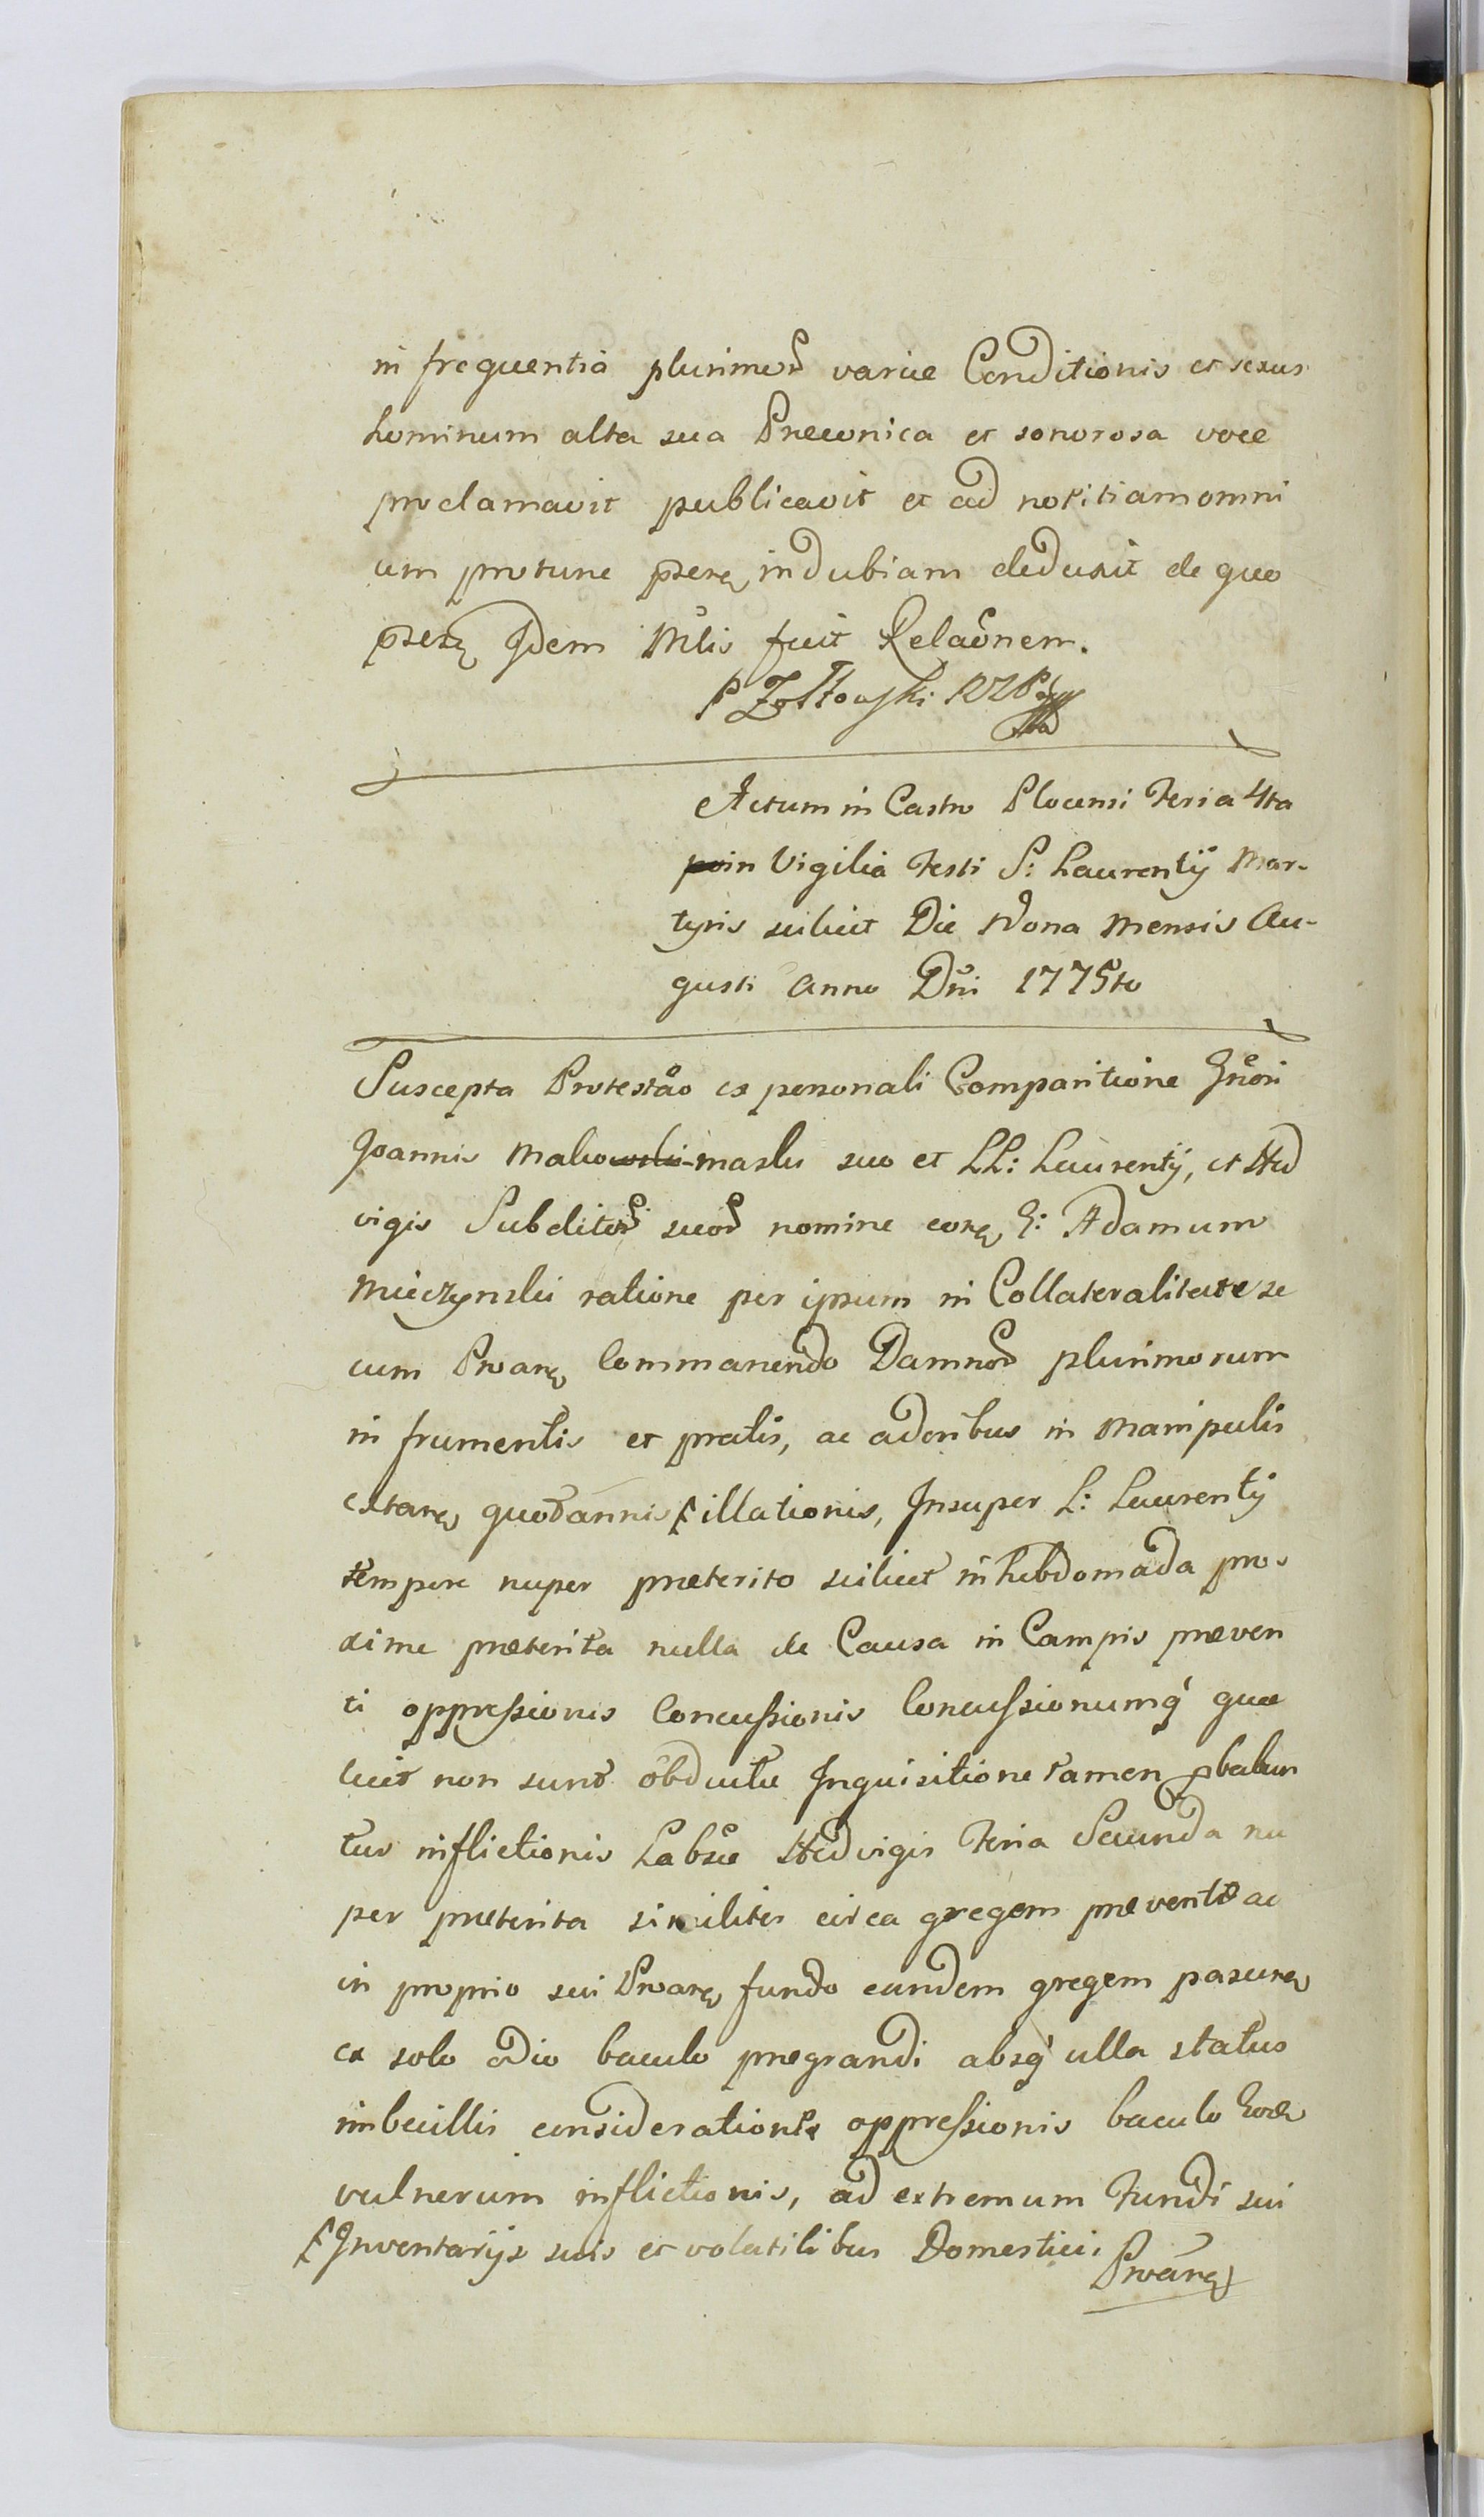 in frequentia plurimor̃ variæ Conditionis et sexus
hominum alta sua Præconica et sonorosa voce
proclamavit publicavit et ad notitiam omni
um protunc p̃sens indubiam deduxit de quo
p̃sens Idem Mlis fuit Relaõnem.
P Zołtowski
Actum in Castro Plocensi Feria 4ta
in Vigilia Festi S: Laurentÿ Mar-
tyris scilicet Die Nona Mensis Au-
gusti Anno Dñi 1775to
Suscepta Protestão ex personali Comparitione Gñosi
Joannis Makomaski suo et LL: Laurentÿ, et Hed
vigis Subditor̃ suor̃ nomine cone G: Adamum
Mieczynski ratione per ipsum in Collateralitate se
cum Proane Commanendo Damnor̃ plurimorum
in frumentis et pratis, ac adoribus in Manipulis
extane quotannis ƒ illationis, Insuper L: Laurentÿ
tempore nuper præterito scilicet in hebdomada pro-
xime præterita nulla de Causa in Campis præven
ti oppressionis Concussionis Concussionumq́ quæ
licet non sunt obductæ Inquisitione tamen pbabun
tur inflictionis Labsæ Hedvigis Feria Secunda nu
per præterita similiter circa gregem præventæ ac
in proprio sui Proane fundo eundem gregem pascene
ex solo odio baculo prægrandi absq́ ulla status
imbecillis consideratione oppressionis baculo
vulnerum inflictionis, ad extremum Fundi sui
ƒ Inventarijs suis et volatilibus Domesticis
Proane